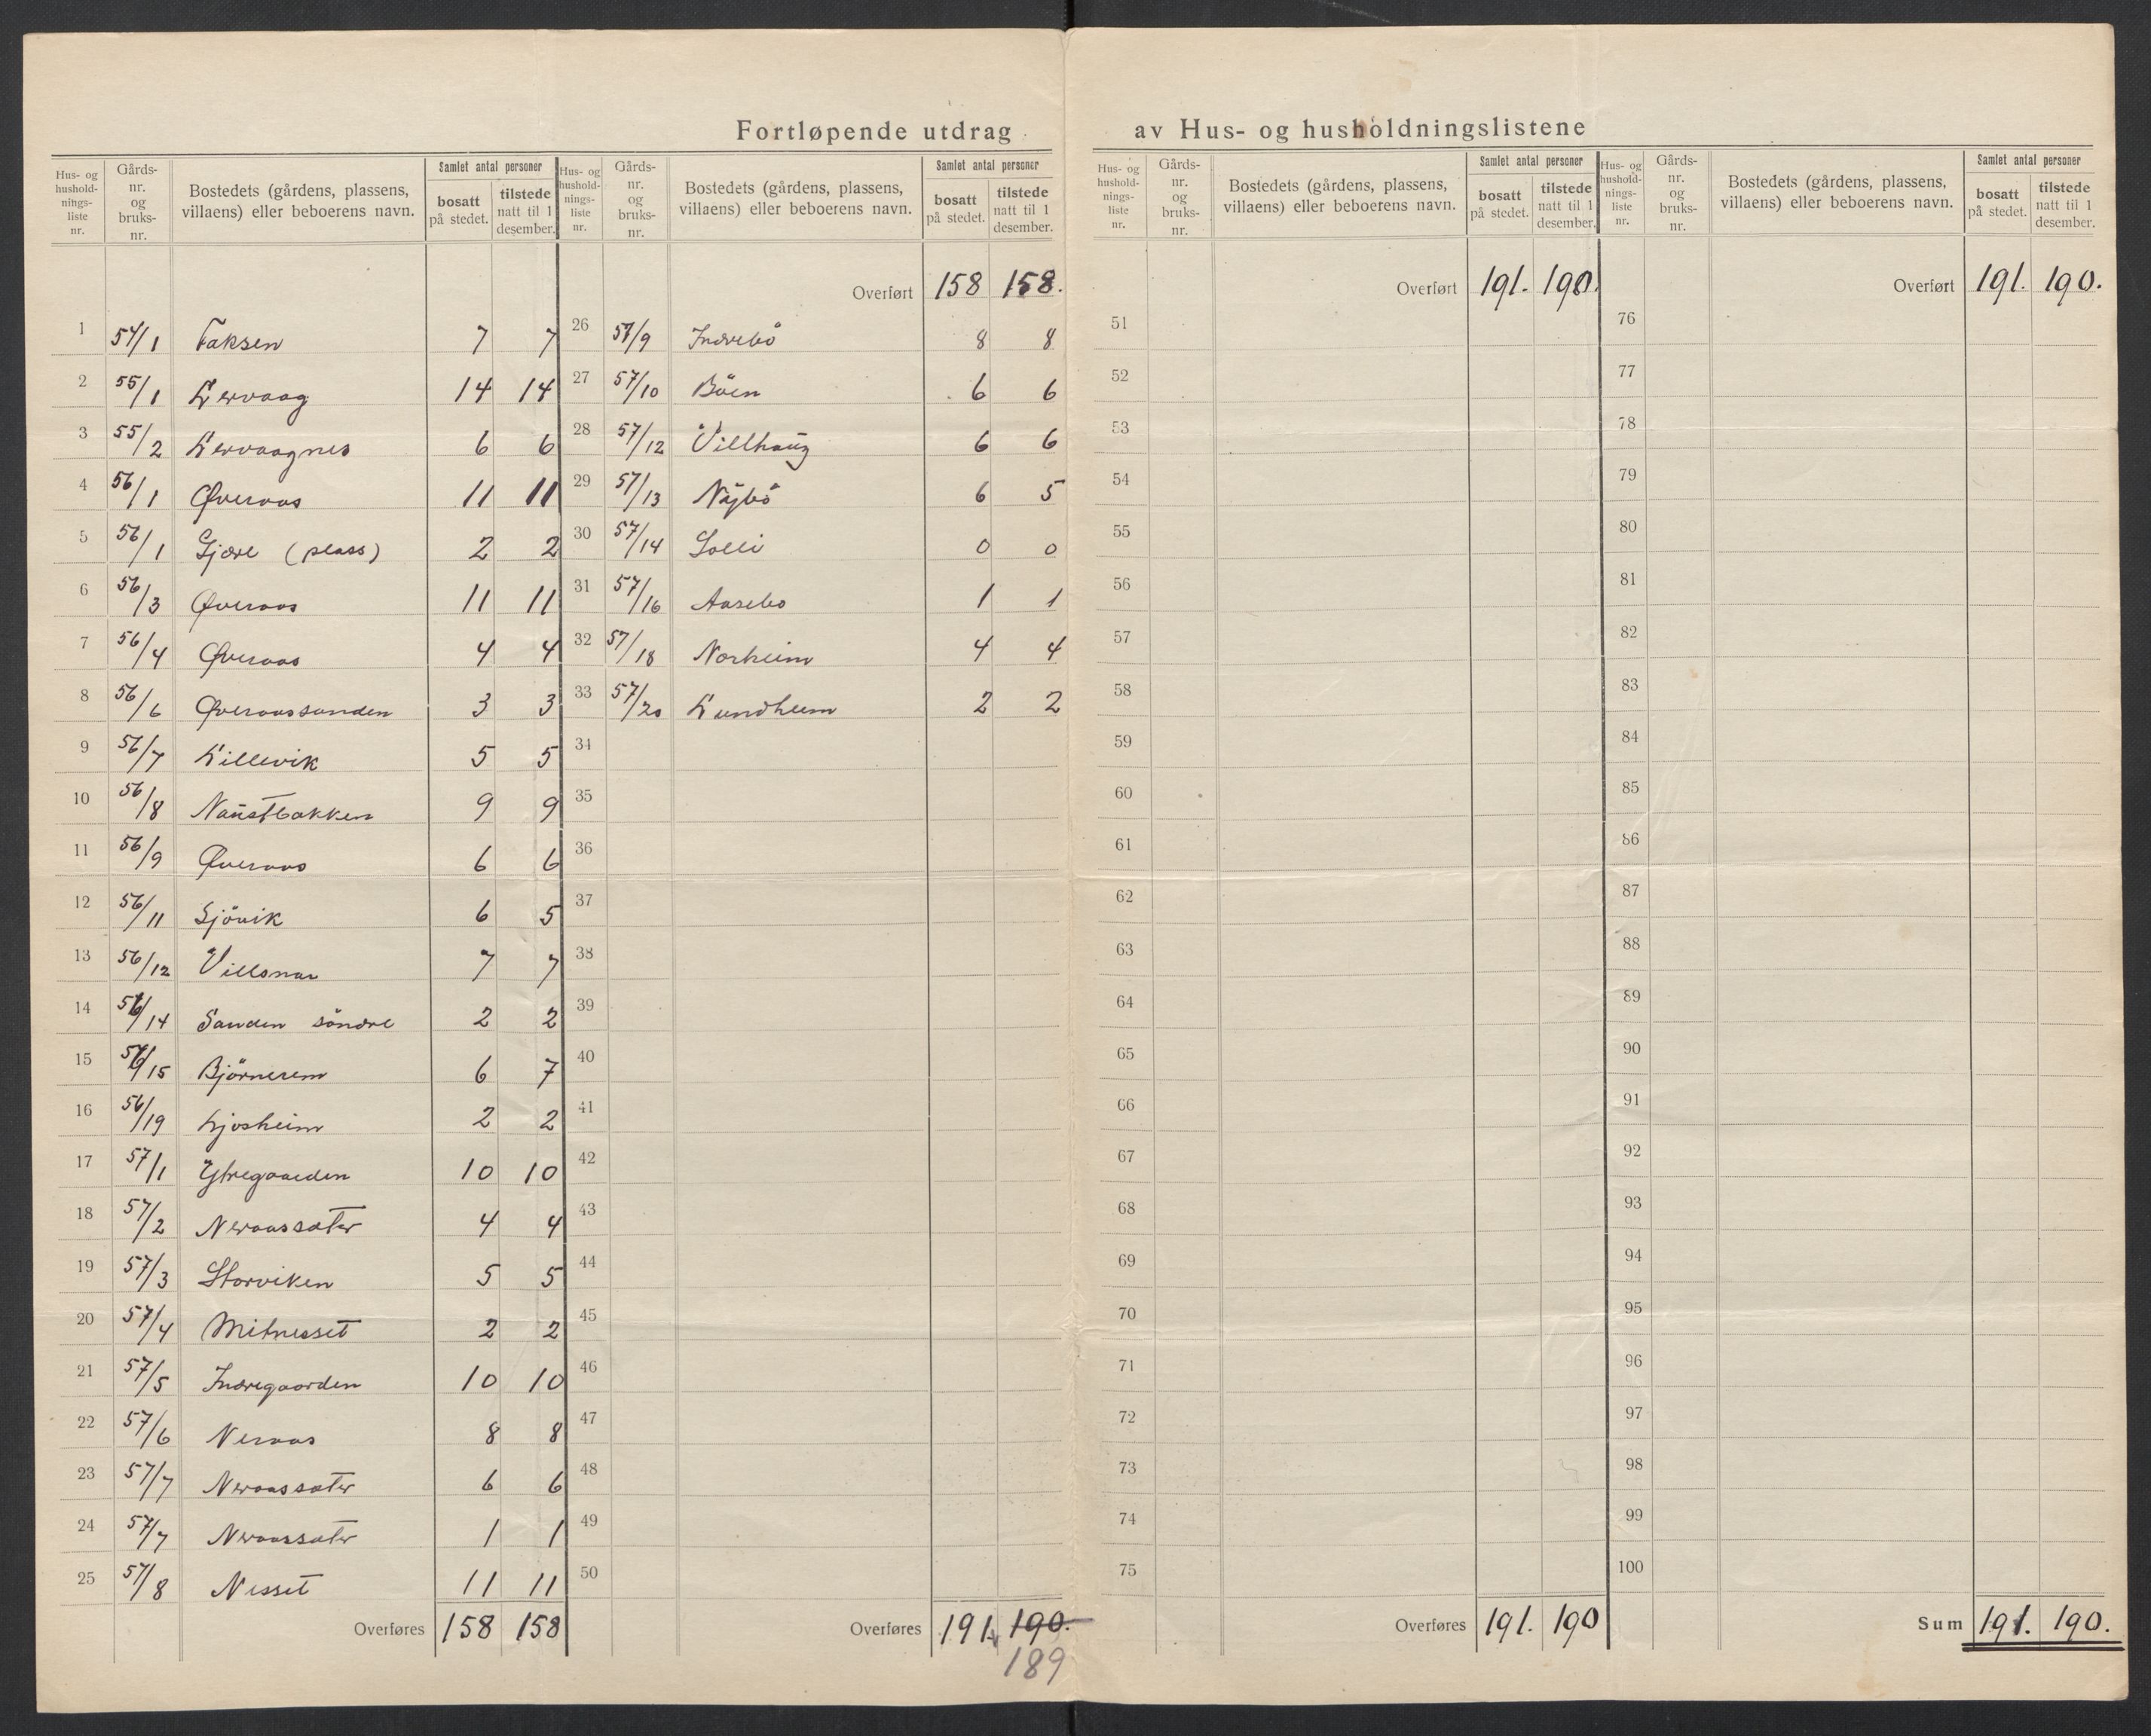 Fortløpende utdrag av Hus- og husholdningslistene
Hus- og hushold-nings-liste nr. | Gårds-nr. og bruks-nr. | Bostedets (gårdens, plassens, villaens) eller beboerens navn. | Samlet antal personer | bosatt på stedet. | tilstede natt til 1 desember.
1 54/1 Faksen 7 7
2 55/1 Lervaag 14 14
3 55/2 Lervaagnes 6 6
4 56/1 Øveraas 11 11
5 56/1 Gjære (plass) 2 2
6 56/3 Øveraas 11 11
7 56/4 Øveraas 4 4
8 56/6 Øveraassanden 3 3
9 56/7 Lillevik 5 5
10 56/8 Naustbakken 9 9
11 56/9 Øveraas 6 6
12 56/11 Sjövik 6 5
13 56/12 Villsnar 7 7
14 56/14 Sanden söndre 2 2
15 56/15 Björnerem 6 7
16 56/19 Ljosheim 2 2
17 57/1 Ytregaarden 10 10
18 57/2 Neraassæter 4 4
19 57/3 Storviken 5 5
20 57/4 Mitnesset 2 2
21 57/5 Indregaarden 10 10
22 57/6 Neraas 8 8
23 57/7 Neraassæter 6 6
24 57/7 Neraassæter 1 1
25 57/8 Nesset 11 11
Overføres 158 158
Hus- og hushold-nings-liste nr. | Gårds-nr. og bruks-nr. | Bostedets (gårdens, plassens, villaens) eller beboerens navn. | Samlet antal personer | bosatt på stedet. | tilstede natt til 1 desember.
Overført 158 158.
26 57/9 Indrebö 8 8
27 57/10 Böen 6 6
28 57/12 Villhaug 6 6
29 57/13 Nybö 6 5
30 57/14 Solli 0 0
31 57/16 Aasebo 1 1
32 57/18 Norheim 4 4
33 57/20 Lundheim 2 2
34
35
36
37
38
39
40
41
42
43
44
45
46
47
48
49
50
Overføres 191 190.
189
Hus- og hushold-nings-liste nr. | Gårds-nr. og bruks-nr. | Bostedets (gårdens, plassens, villaens) eller beboerens navn. | Samlet antal personer | bosatt på stedet. | tilstede natt til 1 desember.
Overført 191. 190.
51
52
53
54
55
56
57
58
59
60
61
62
63
64
65
66
67
68
69
70
71
72
73
74
75
Overføres 191. 190
Hus- og hushold-nings-liste nr. | Gårds-nr. og bruks-nr. | Bostedets (gårdens, plassens, villaens) eller beboerens navn. | Samlet antal personer | bosatt på stedet. | tilstede natt til 1 desember.
Overført 191. 190.
76
77
78
79
80
81
82
83
84
85
86
87
88
89
90
91
92
93
94
95
96
97
98
99
100
Sum 191. 190.